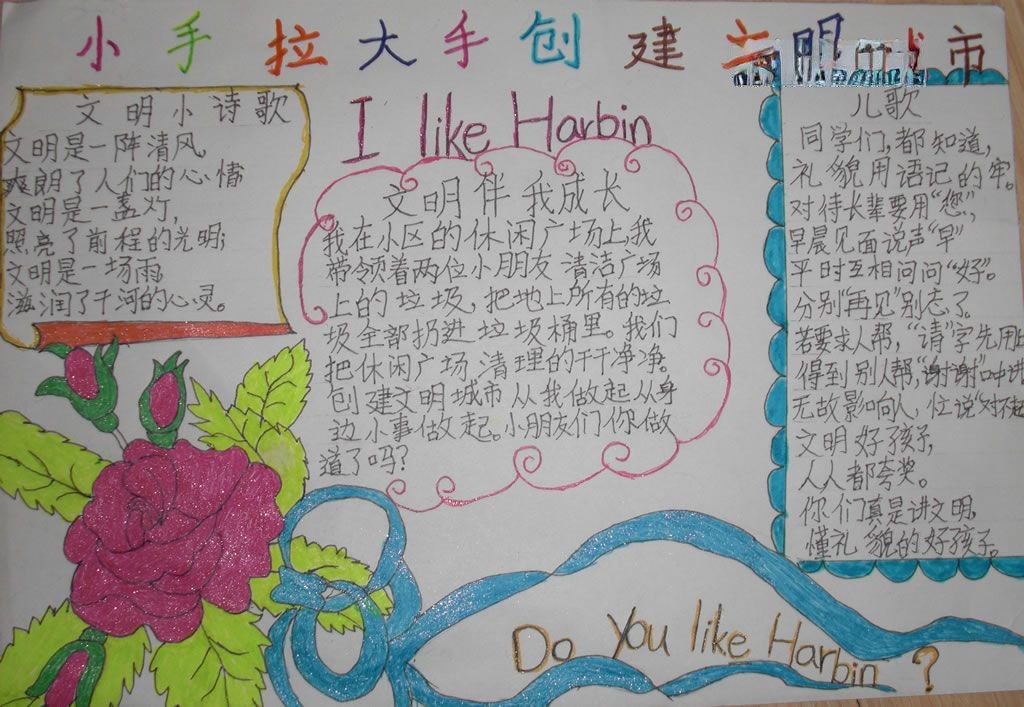 小手拉大手创建文明城市
文明小诗歌
文明是一阵清风，
爽朗了人们的心情
文明是一盏灯，
照亮了前程的光明；
文明是一场雨，
滋润了干河的心灵。
I like Harbin
文明伴我成长
我在小区的休闲广场上，我
带领着两位小朋友清洁广场
上的垃圾，把地上所有的垃
圾全部扔进垃圾桶里。我们
把休闲广场清理的干干净净。
创建文明城市从我做起从身
边小事做起。小朋友们你做
道了吗？
儿歌
同学们，都知道，
礼貌用语记的牢。
对待长辈要用“您”，
早晨见面说声“早”
平时互相问问“好”。
分别“再见”别忘了。
若要求人帮，“请”字先用上
得到别人帮，“谢谢”口中讲
无故影响人，忙说“对不起
文明好孩子，
人人都夸奖。
你们真是讲文明，
懂礼貌的好孩子。
Do you like Harbin ?